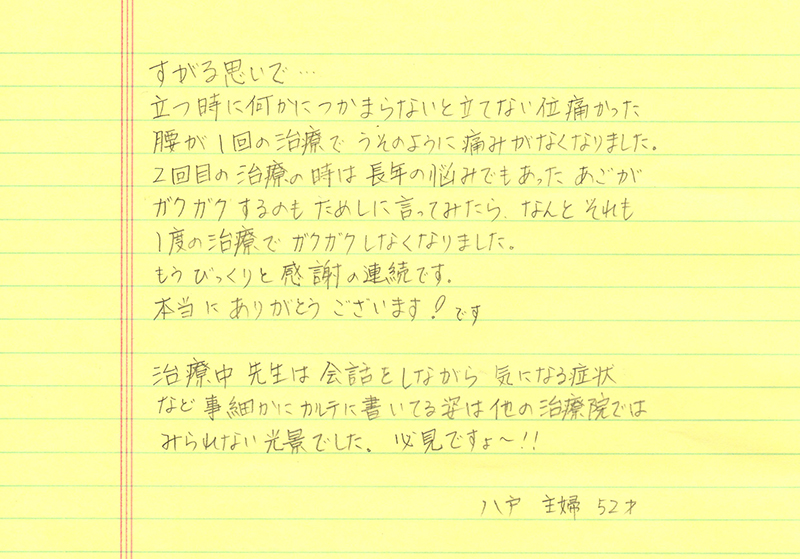 すがる思いで…
立つ時に何かにつかまらないと立てない位痛かった
腰が1回の治療で うそのように痛みがなくなりました。
2回目の治療の時は長年の悩みでもあった あごが
ガクガクするのも ためしに言ってみたら、なんと それも
1度の治療で ガクガクしなくなりました。
もう びっくりと 感謝の連続です。
本当に ありがとう ございます!です
治療中 先生は 会話をしながら 気になる症状
など 事細かに カルテに書いてる姿は 他の治療院では
みられない光景でした。必見ですょ〜!!
八戸 主婦 52才